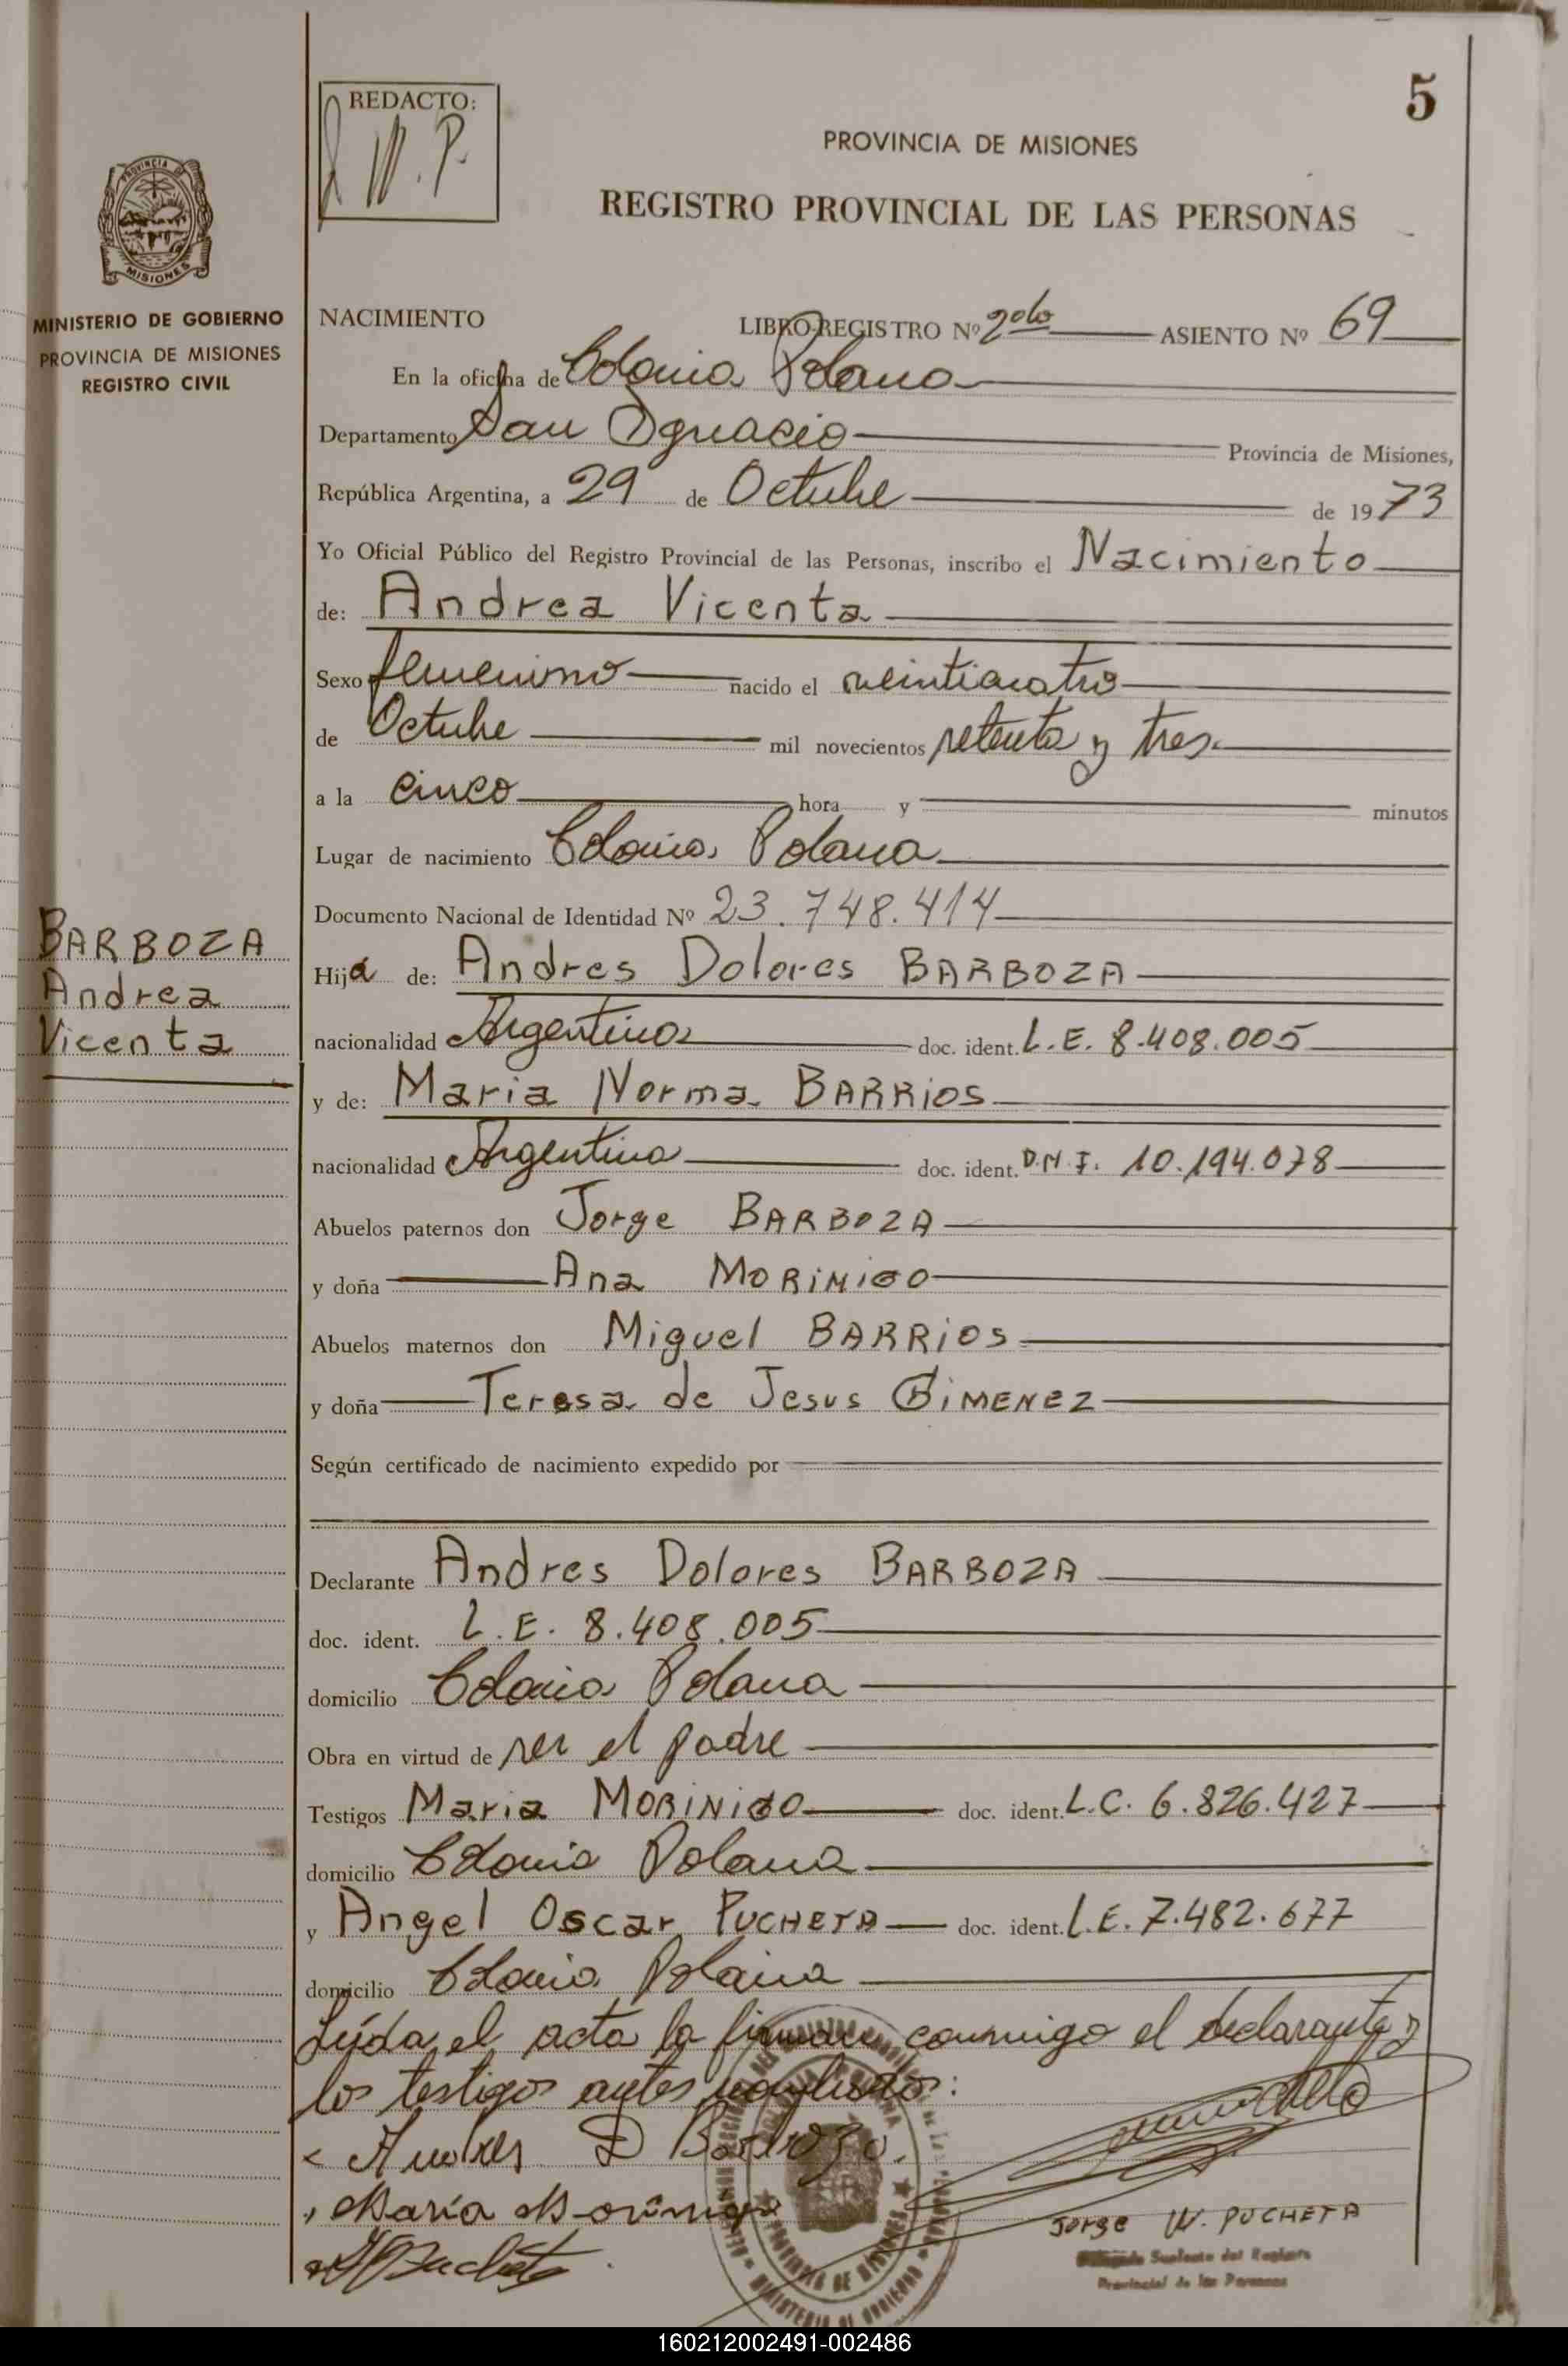 5
REDACTO:
J W. P.
PROVINCIA DE MISIONES
REGISTRO PROVINCIAL DE LAS PERSONAS
PROVINCIA DE
MISIONES
MINISTERIO DE GOBIERNO
PROVINCIA DE MISIONES
REGISTRO CIVIL
NACIMIENTO LIBRO REGISTRO Nº ASIENTO Nº 69
En la oficina de Colonia Polana
Departamento San Ignacio Provincia de Misiones,
República Argentina, a 29 de Octubre de 1973
Yo Oficial Público del Registro Provincial de las Personas, inscribo el Nacimiento
de: Andrea Vicenta
Sexo femenino nacido el veinticuatro
de Octubre mil novecientos setenta y tres
a la cinco hora y minutos
Lugar de nacimiento Colonia Polana
Documento Nacional de Identidad Nº 23.748.414
BARBOZA
Andrea
Vicenta
Hija de: Andres Dolores BARBOZA
nacionalidad Argentina doc. ident. L.E. 8.408.005
y de: Maria Norma BARRIOS
nacionalidad Argentina doc. ident. D.N.I. 10.194.078
Abuelos paternos don Jorge BARBOZA
y doña Ana MORINIGO
Abuelos maternos don Miguel BARRIOS
y doña Teresa de Jesus GIMENEZ
Según certificado de nacimiento expedido por
Declarante Andres Dolores BARBOZA
doc. ident. L.E. 8.408.005
domicilio Colonia Polana
Obra en virtud de ser el padre
Testigos Maria MORINIGO doc. ident. L.C. 6.826.427
domicilio Colonia Polana
y Angel Oscar PUCHETA doc. ident. L.E. 7.482.677
domicilio Colonia Polana
Leída el acta la firman conmigo el declarante y
los testigos antes nombrados:
Andres D Barboza
Maria Morinigo
Jorge W. PUCHETA
Delegado Suplente del Registro
Provincial de las Personas
PROVINCIA DE MISIONES
MINISTERIO DE GOBIERNO
160212002491-002486